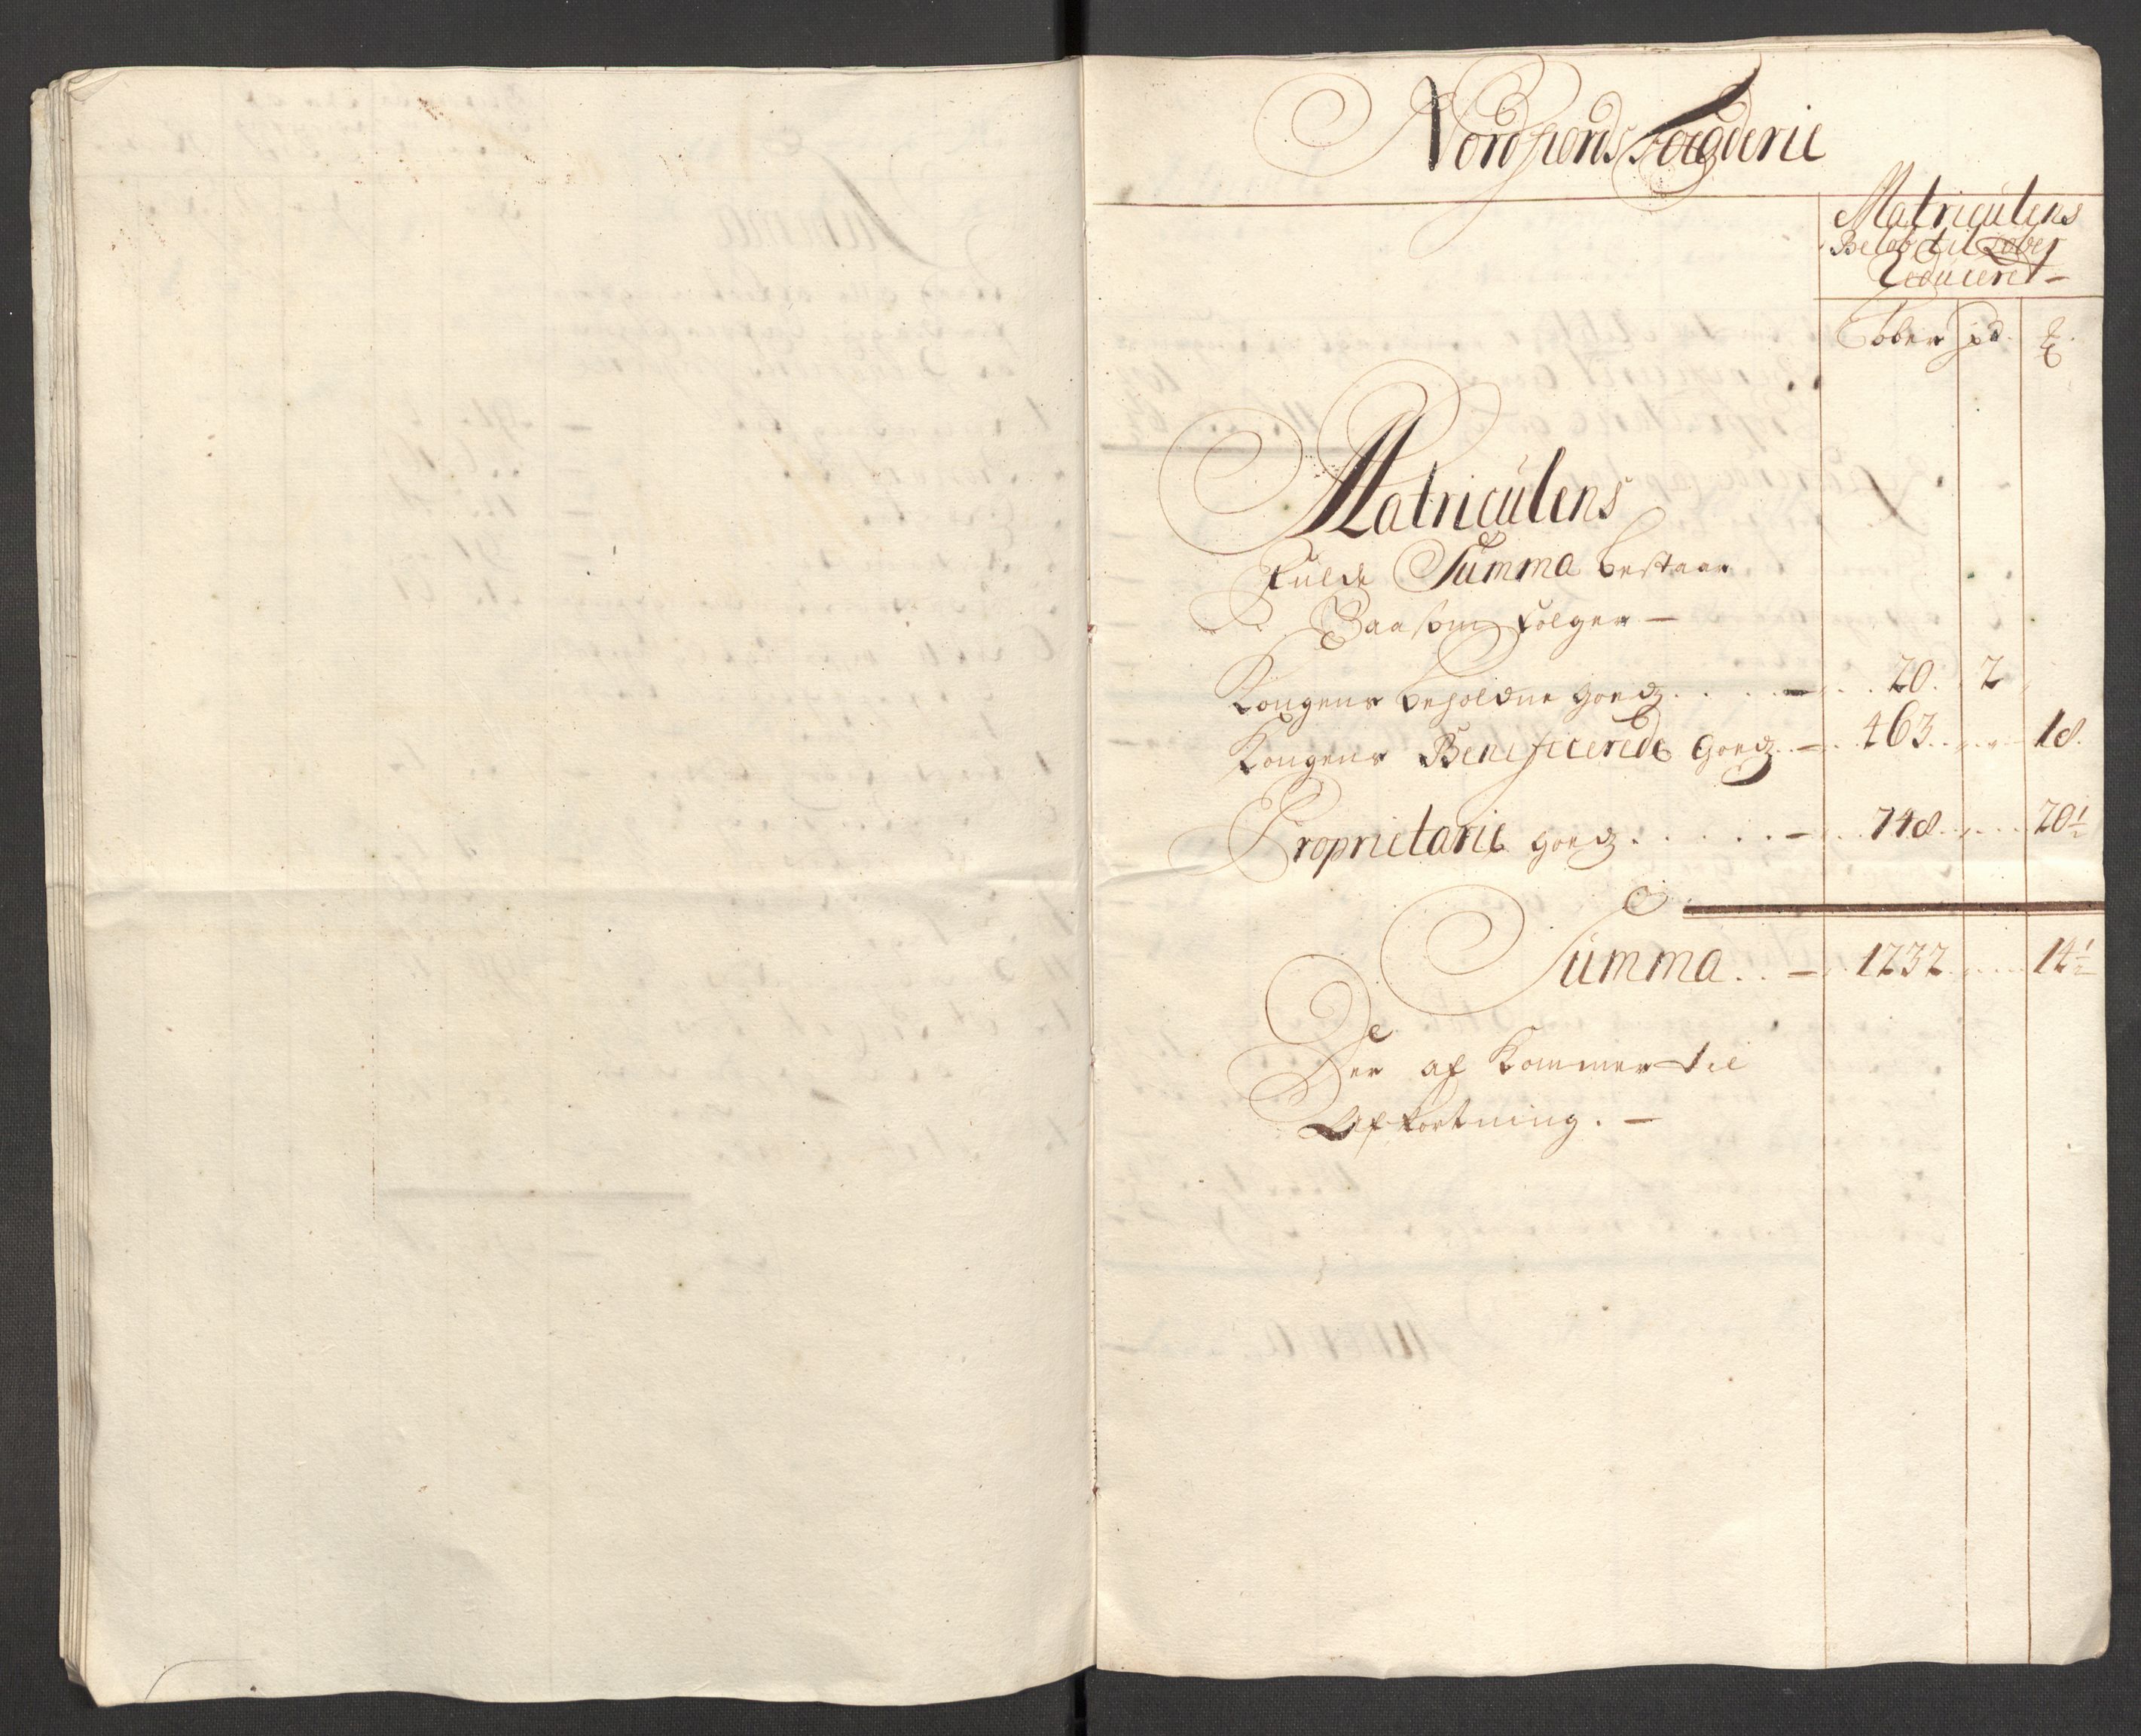 Nordfiords Fogderie
Matriculens
Beløb til Løber
Reduceret –
Løber pd. ℔.
Matriculens
Fulde Summa bestaar
Paa som følger –
Kongens beholdne Goedz . . . . – . . 20. 2 „
Kongens Beneficerede Goedz – . 463 . . „ . . 18.
Proprietarie Goedz . . . . . – . . 748 . . „ . . . 20½
Summa . . – . 1232 . . . . 14½
Der af Kommer til
Afkortning. –